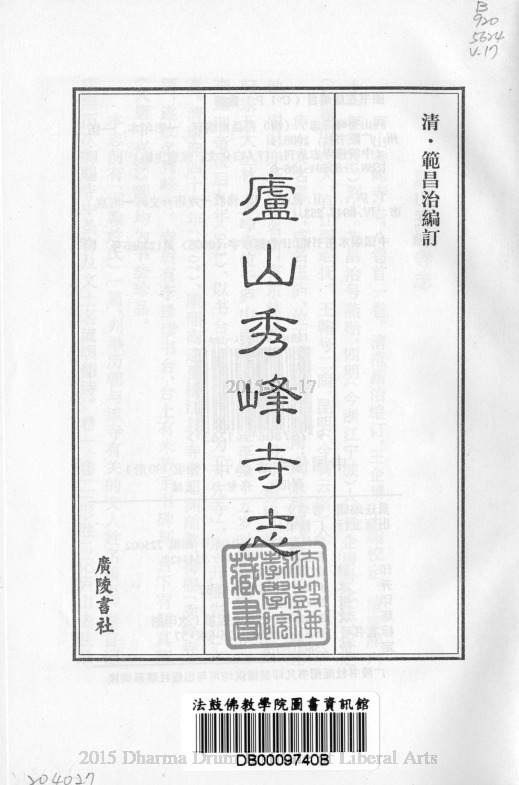 B
920
5624
V.17
清·範昌治編訂
廬山秀峰寺志
廣陵書社
法鼓佛
教學院
藏書
法鼓佛教學院圖書資訊館
DB0009740B
2015 Dharma Drum Liberal Arts
204027